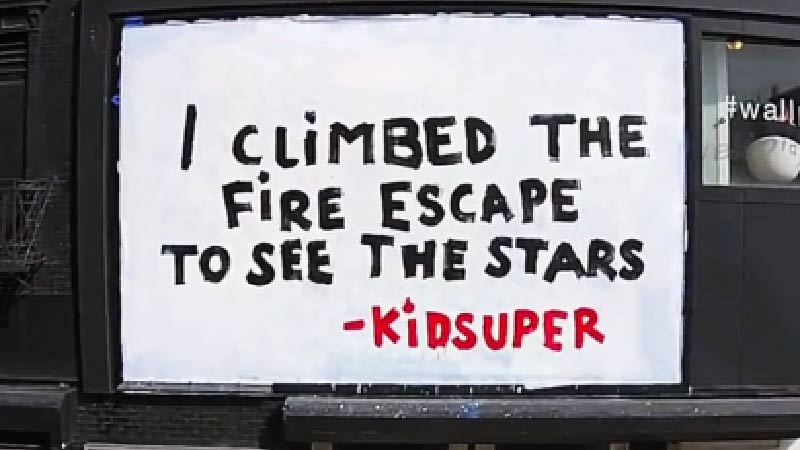 I CLiMBED THE
FiRE ESCAPE
TO SEE THE STARS
-KiDSUPER
#wall